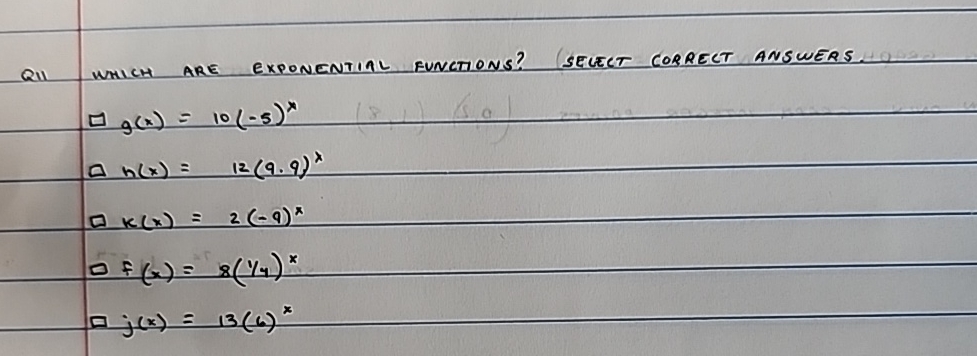 Q11 WHICH ARE EXPONENTIAL FUNCTIONS? (SELECT CORRECT ANSWERS.
□ g(x) = 10(-5)ˣ
□ h(x) = 12(9.9)ˣ
□ k(x) = 2(-9)ˣ
□ f(x) = 8(1/4)ˣ
□ j(x) = 13(6)ˣ